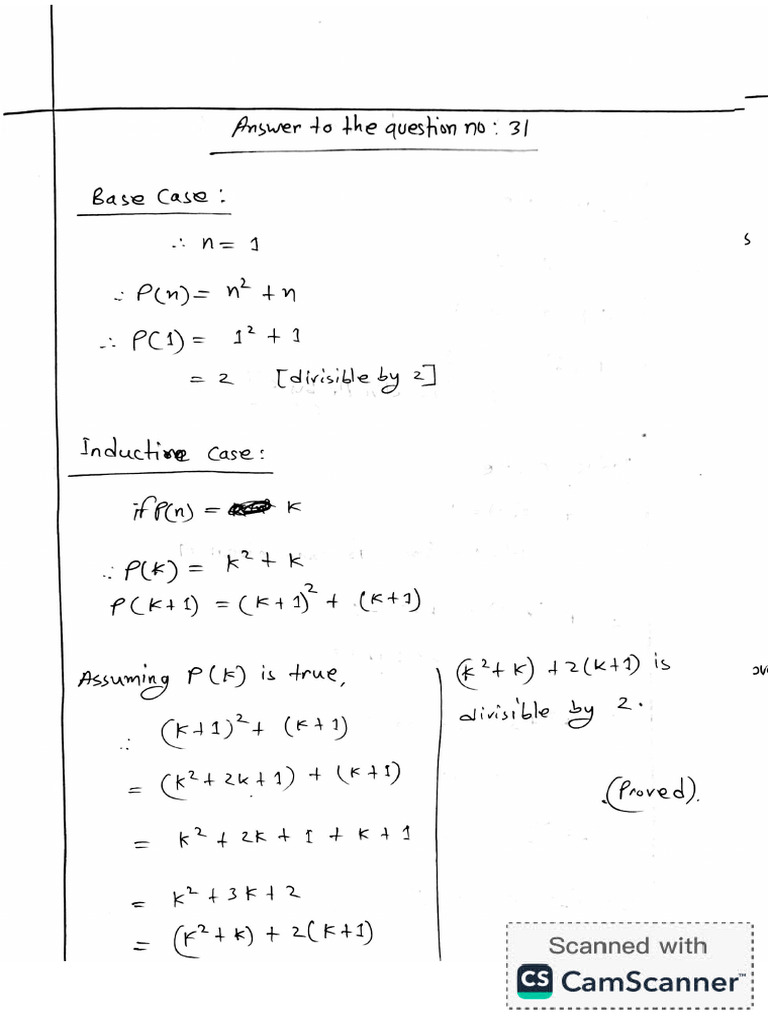 Answer to the question no: 31
Base Case:
∴ n = 1
∴ P(n) = n² + n
∴ P(1) = 1² + 1
= 2 [divisible by 2]
Inductive Case:
if P(n) = k
∴ P(k) = k² + k
P(k+1) = (k+1)² + (k+1)
Assuming P(k) is true,
∴ (k+1)² + (k+1)
= (k² + 2k + 1) + (k+1)
= k² + 2k + 1 + k + 1
= k² + 3k + 2
= (k² + k) + 2(k+1)
(k² + k) + 2(k+1) is
divisible by 2.
(Proved).
s
Scanned with
CS CamScanner™